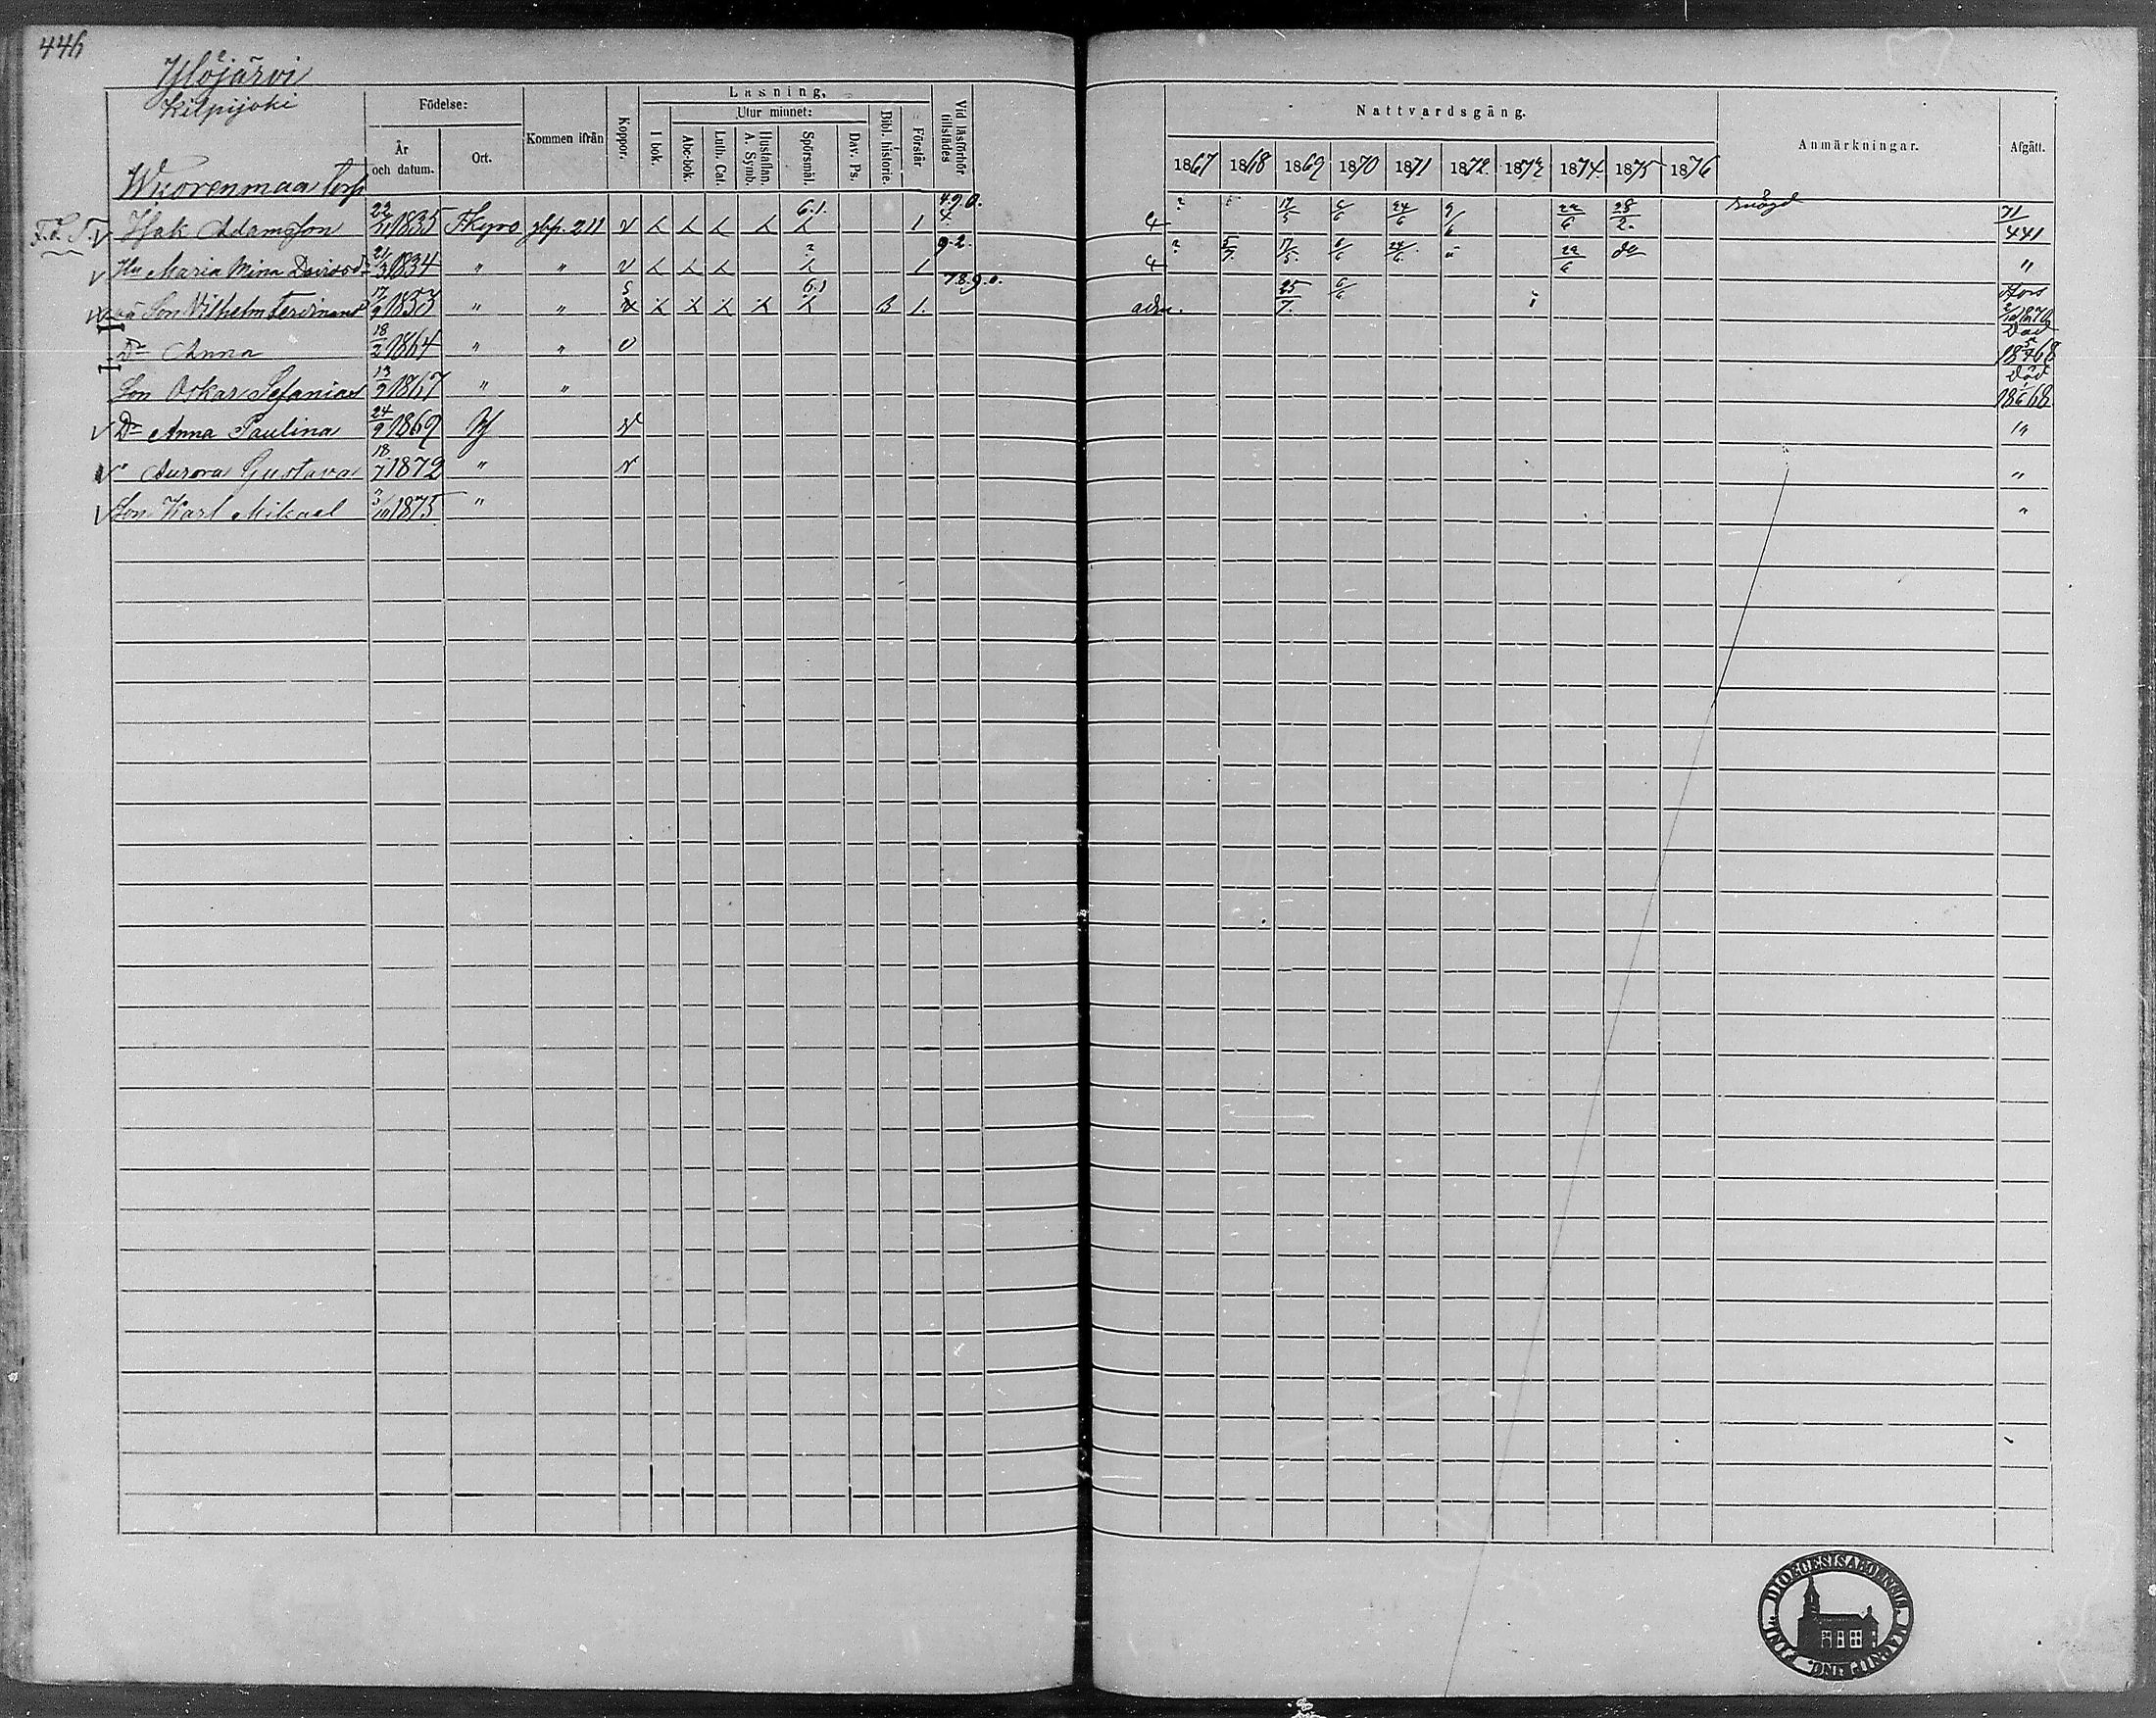 446
Ylöjärvi
Kilpijoki
Wuorenmaa torp
Födelse:
År och datum.
Ort.
Kommen ifrån
Koppor.
Läsning.
I bok.
Utur minnet:
Abc-bok.
Luth. Cat.
A. Symb. Hustaflan.
Spörsmål.
Dav. Ps.
Bibl. historie.
Förstår.
Vid läsförhör tillstädes
Nattvardsgång.
1867 1868 1869 1870 1871 1872 1873 1874 1875 1876
Anmärkningar.
Afgått.
Isak Adamsson 1835 Tkyro gbp. 211 v 6.1. 1 4.9.0. 4 17/5 6/6 24/6 9/6 22/6 28/2. 71/441
Hu Maria Mina Davidsdr 21/3 1834 " " v 1 9.2. 4 5/7. 17/5. 6/6 24/6. " 22/6 do "
Son Vilhelm Ferdinand 17/2 1853 " " v 6.1 B 1. 7.8.9.0. adm. 25/7. 6/6
Dr Anna 18/2 1864 " " v Död 1868
Son Oskar Sefanias 13/9 1867 " " Död 1868
v Dr Anna Paulina 24/9 1869 Yj v "
v " Aurora Gustava 18/7 1872 " v "
v Son Karl Mikael 3/10 1875 " "
FINL. DIOECESIS ABOENSIS